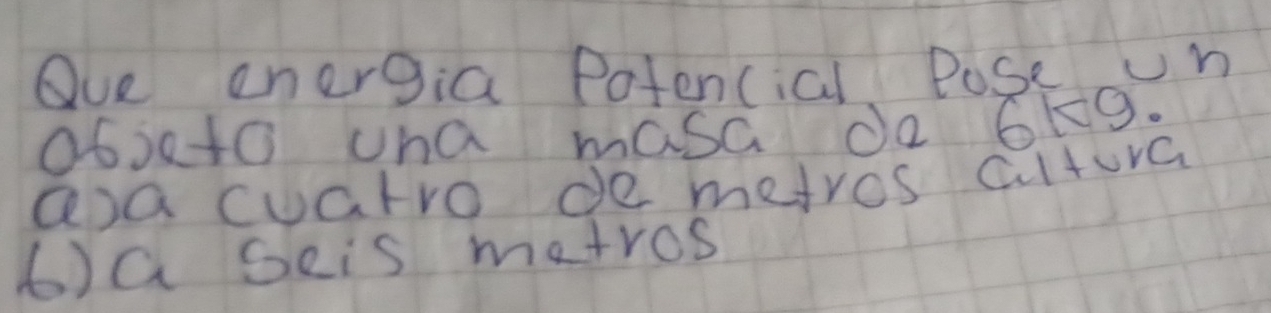 Que energia Potencial Pose un
objeto una masa de 6kg.
a) a cuatro de metros altura
b) a seis metros